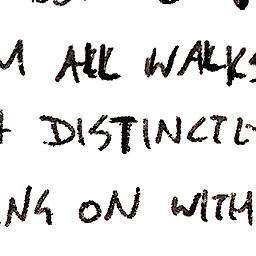 M ALL WALKS
DISTINCTL
NG ON WITH